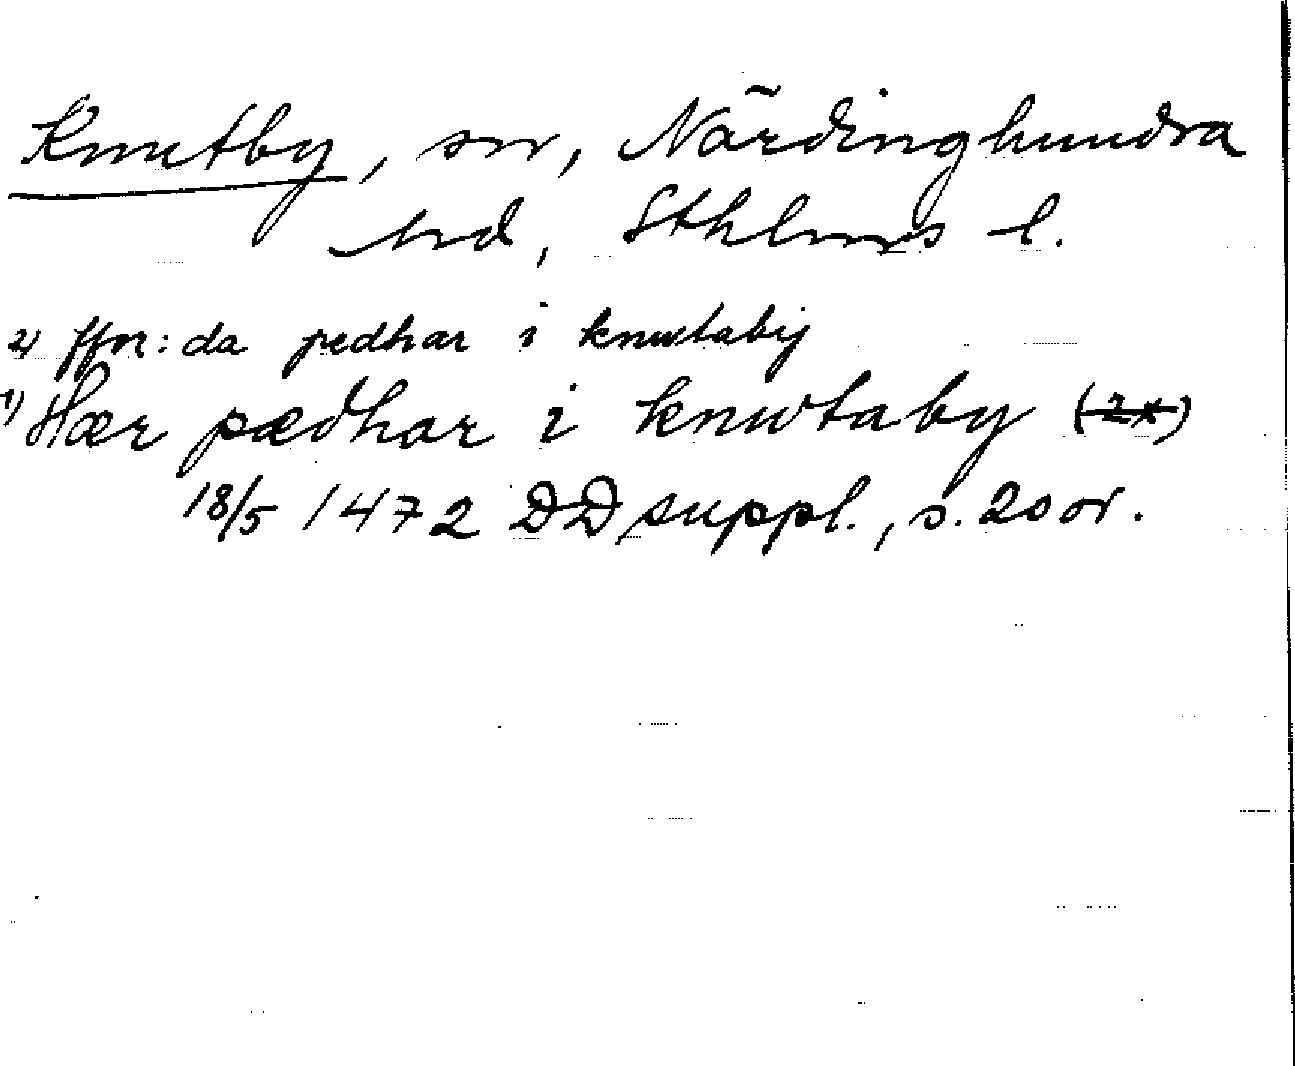 Knutby, sn, Närdinghundra
hd, Sthlms l.
2) ffn: da pedhar i knwtaby
1) Hær pædhar i knwtaby (2x)
18/5 1472 DD suppl., s. 20 or.